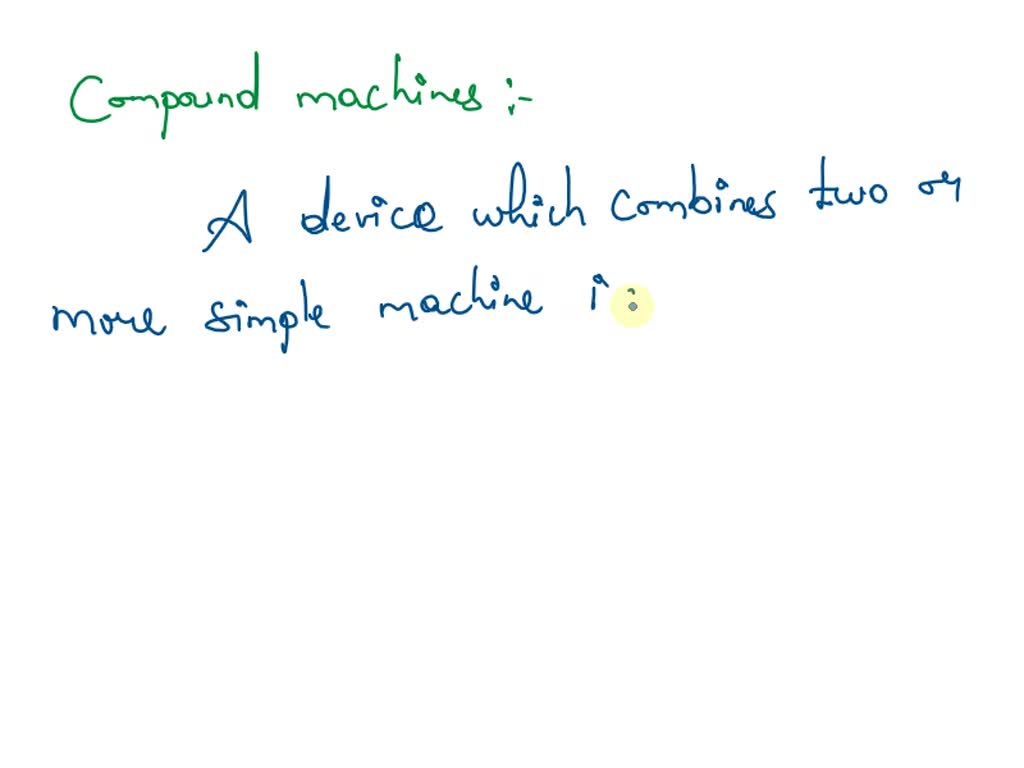 Compound machines :-
A device which combines two or
more simple machine i